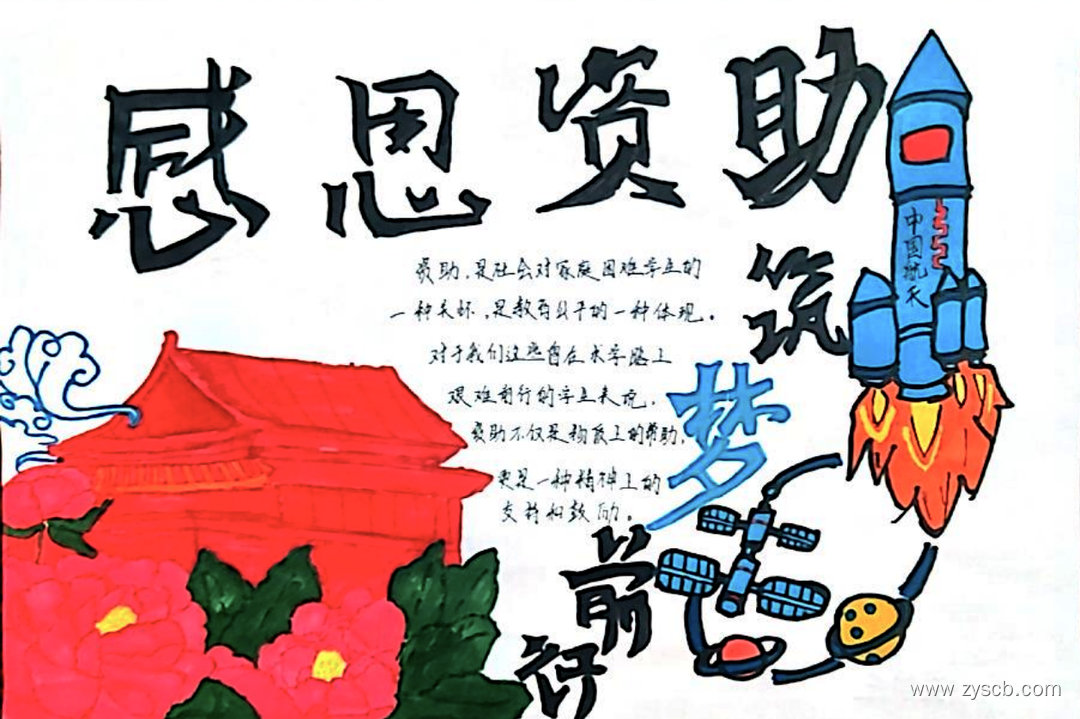 感恩资助
筑
梦
前
行
资助,是社会对家庭困难学生的
一种关怀,是教育公平的一种体现。
对于我们这些自在求学路上
艰难前行的学生来说,
资助不仅是物质上的帮助,
更是一种精神上的
支持和鼓励。
中国航天
www.zyscb.com